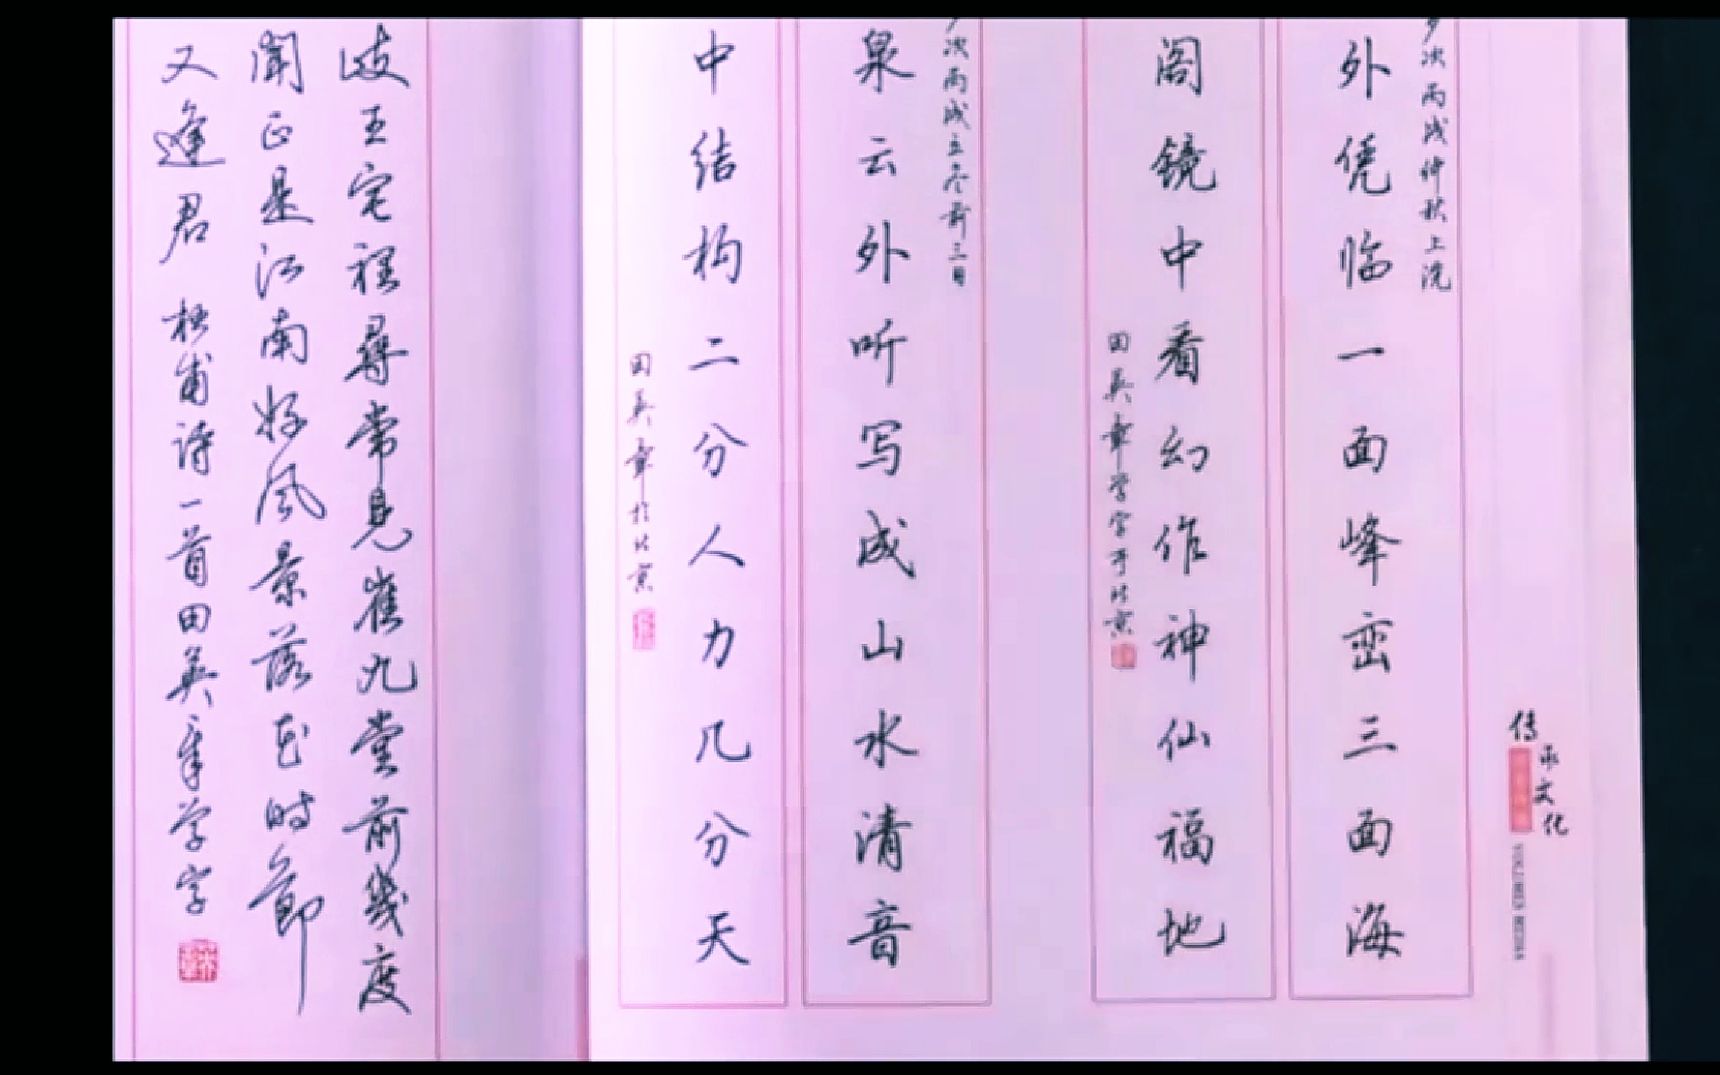 外凭临一面峰峦三面海
岁次丙戌仲秋上浣
阁镜中看幻作神仙福地
田英章学字于北京
泉云外听写成山水清音
岁次丙戌立冬前三日
中结构二分人力几分天
田英章于北京
岐王宅裡尋常見崔九堂前幾度
聞正是江南好風景落花時節
又逢君 杜甫詩一首田英章学字
传承文化